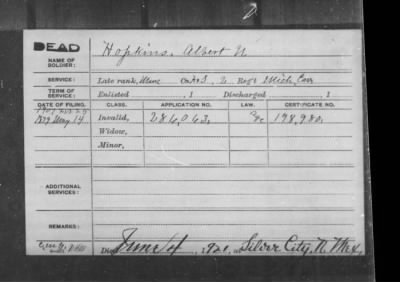 DEAD
NAME OF SOLDIER: Hopkins, Albert N
SERVICE: Late rank, Co. 2 Reg't Mich. Cav
TERM OF SERVICE: Enlisted , 1 Discharged , 1
DATE OF FILING. CLASS. APPLICATION NO. LAW. CERTIFICATE NO.
1879 May 14 Invalid, 284,043, 198,980,
Widow,
Minor,
ADDITIONAL SERVICES:
REMARKS:
Died June 14, 1920, at Silver City, N. Mex,